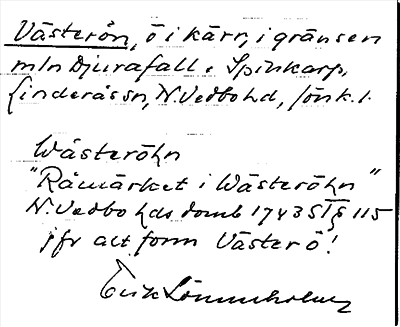 Västerön, ö i kärr, i gränsen
mln Djurafall o Spinkarp,
Linderås sn, N. Vedbo hd, Jönk. l.
Wästeröhn
"Råmärket i Wästeröhn"
N. Vedbo hds domb 1743 § 115
jfr att form Västerö!
Erik Lönnerholm